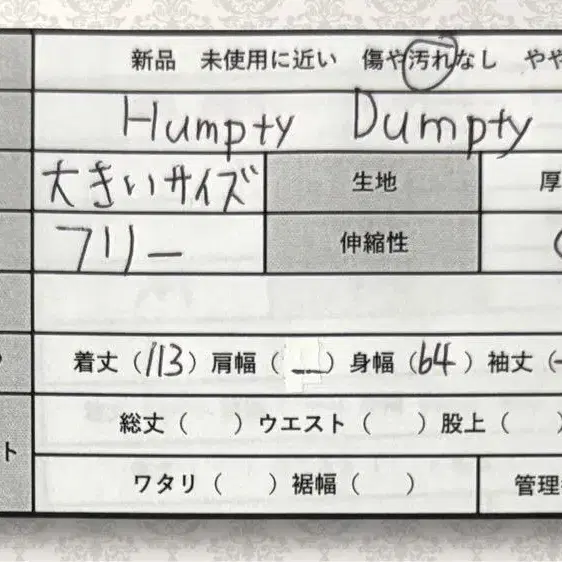 新品 未使用に近い 傷や汚れなし やや
Humpty Dumpty
大きいサイズ 生地 厚
フリー 伸縮性
着丈(113)肩幅(—)身幅(64)袖丈(-
総丈( )ウエスト( )股上( )
ト
ワタリ( )裾幅( ) 管理